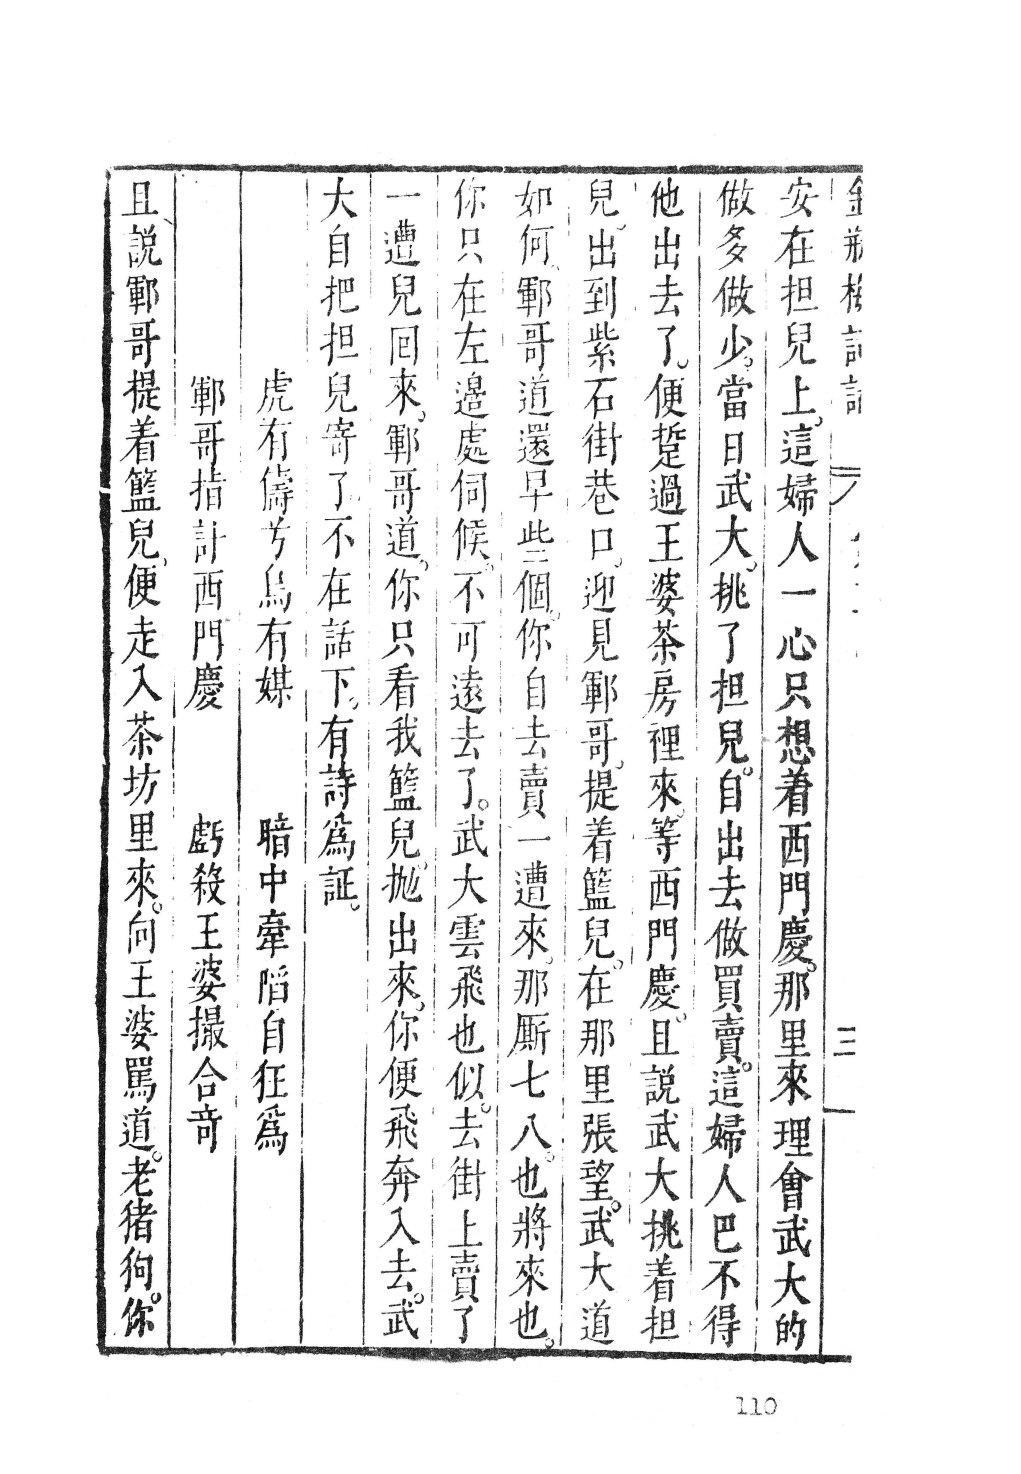 金瓶梅詞話 八 三
安在担兒上。這婦人一心只想着西門慶。那里來理會武大的
做多做少。當日武大。挑了担兒。自出去做買賣。這婦人巴不得
他出去了。便踅過王婆茶房裡來。等西門慶。且說武大挑着担
兒。出到紫石街巷口。迎見鄆哥。提着籃兒。在那里張望。武大道
如何。鄆哥道還早些個。你自去賣一遭來。那厮七八。也將來也。
你只在左邊處伺候。不可遠去了。武大雲飛也似。去街上賣了
一遭兒回來。鄆哥道。你只看我籃兒。抛出來。你便飛奔入去。武
大自把担兒寄了。不在話下。有詩爲証。
虎有倀兮鳥有媒 暗中牽陷自狂爲
鄆哥指計西門慶 虧殺王婆撮合竒
且說鄆哥提着籃兒。便走入茶坊里來。向王婆罵道。老猪狗。你
110